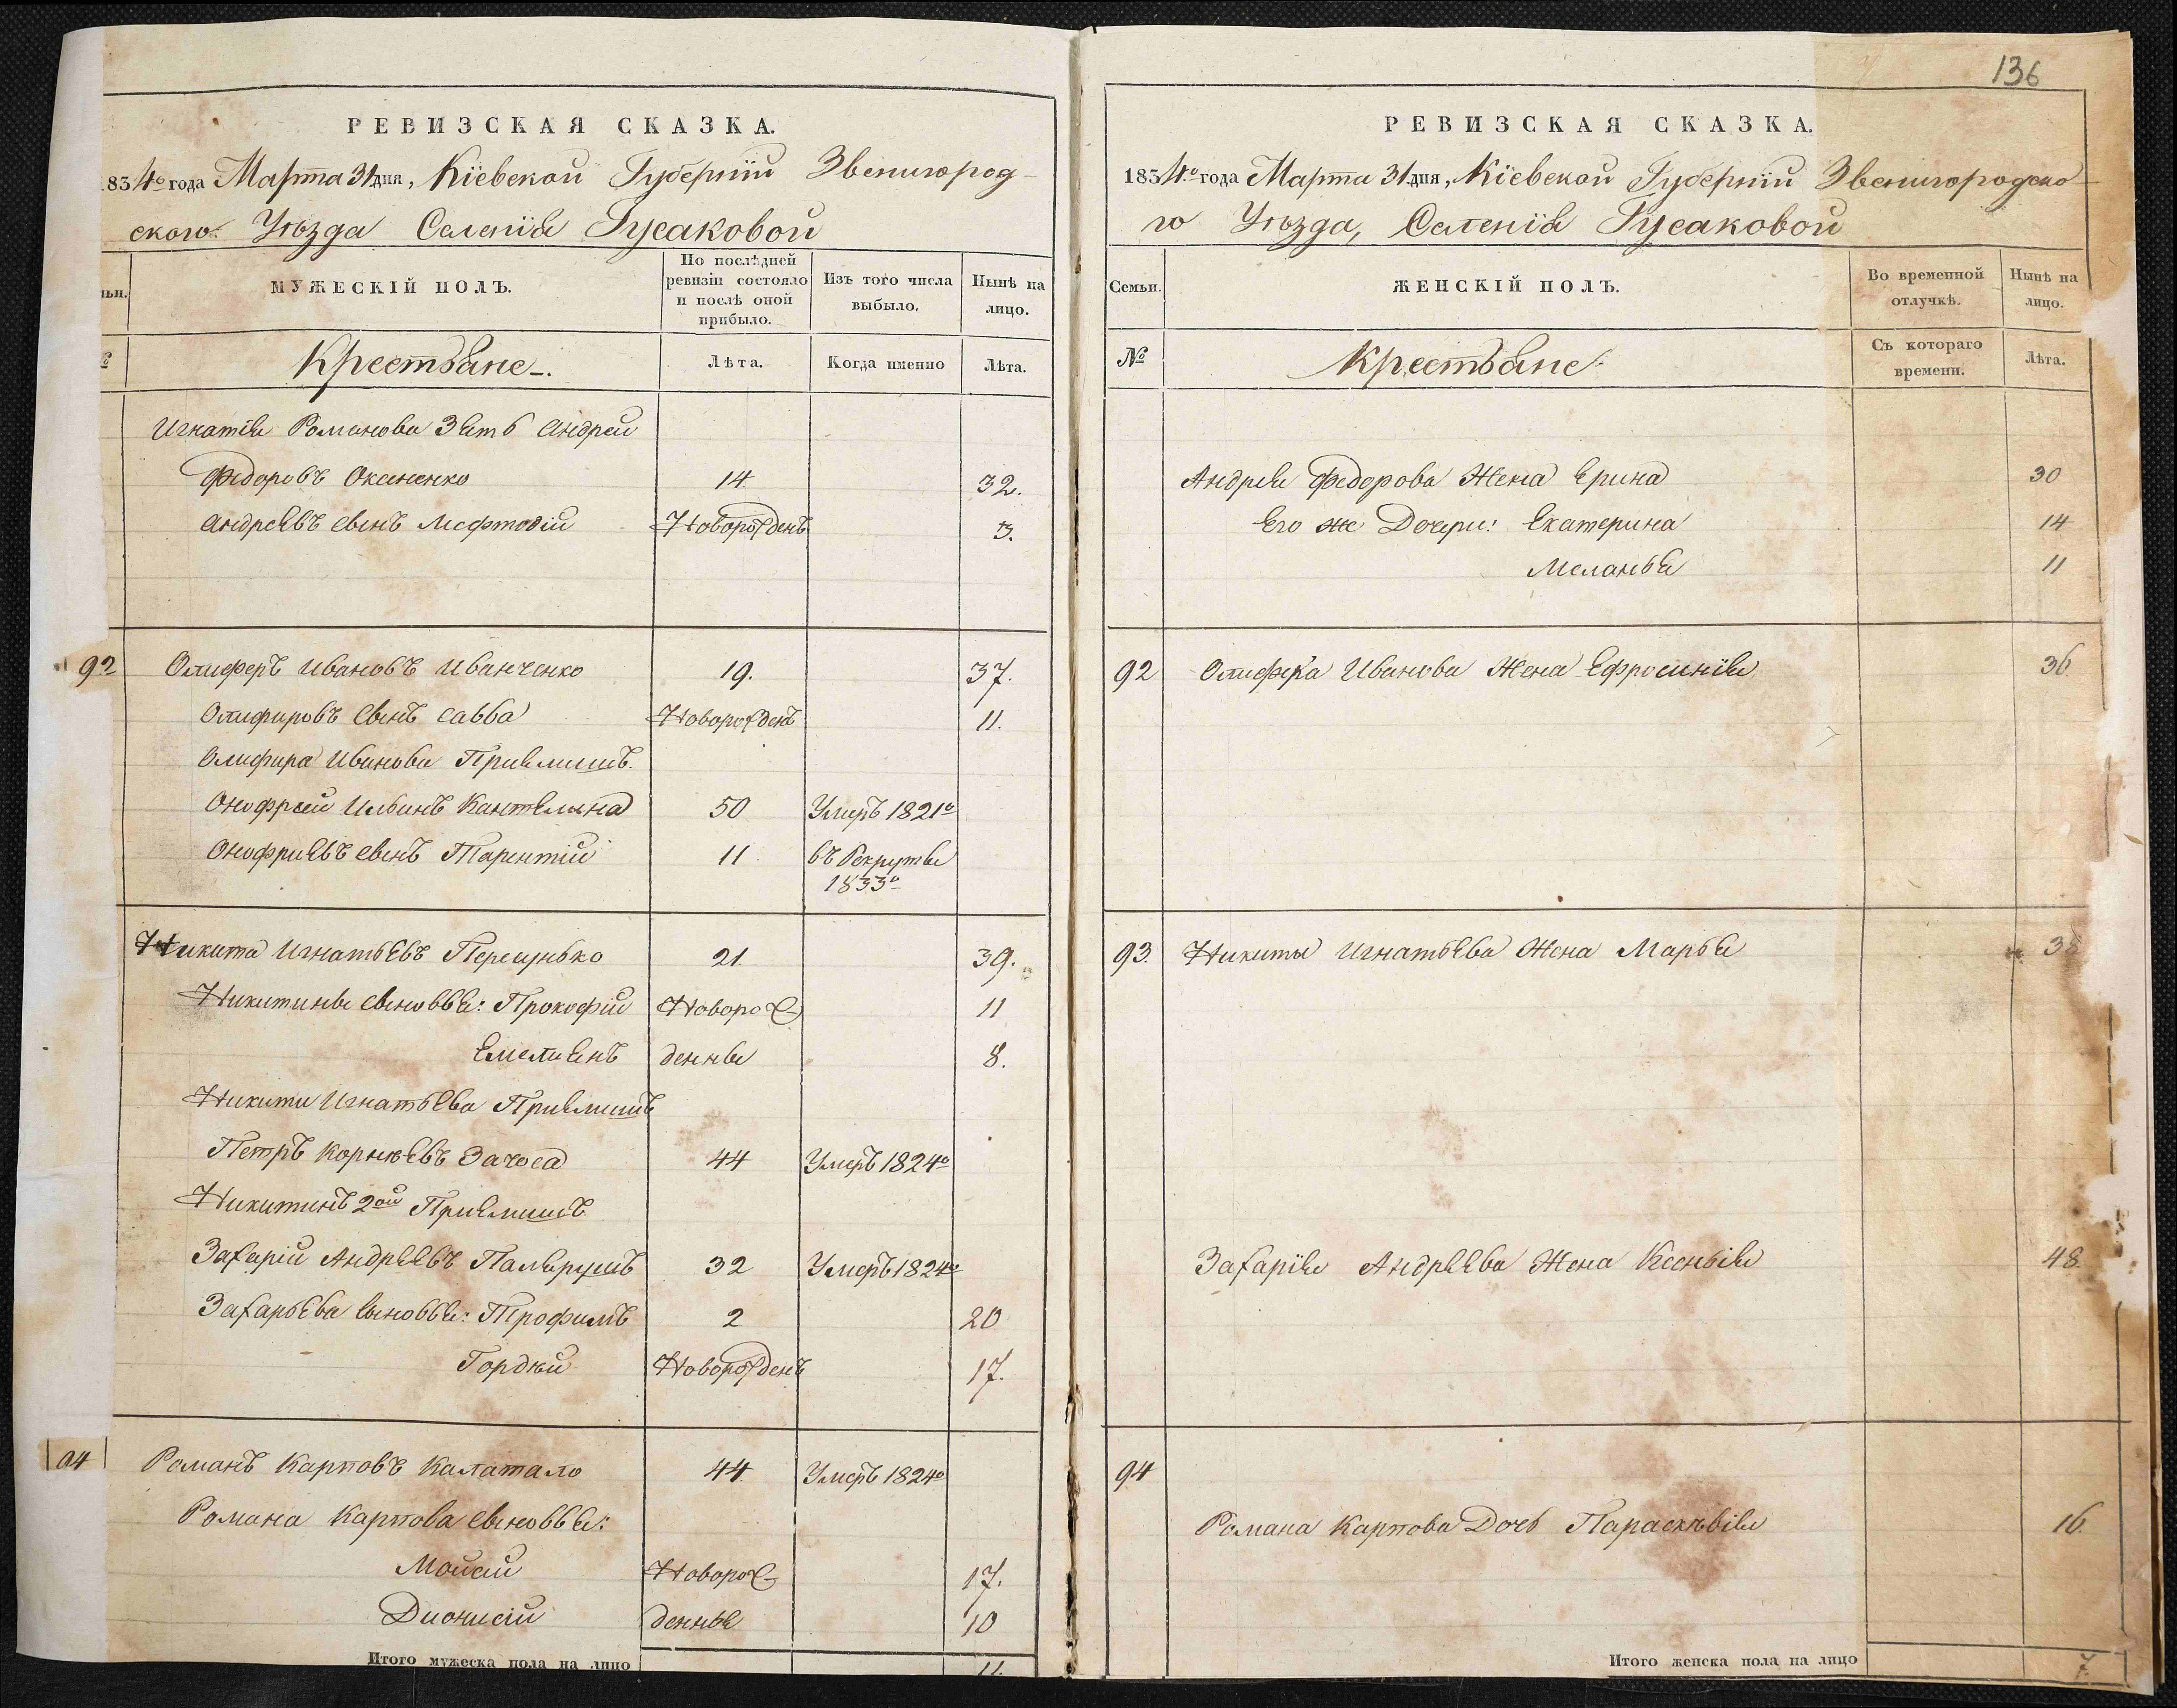 РЕВИЗСКАЯ СКАЗКА.
834го года Марта 31 дня, Кіевской Губерніи Звенигород-
ского Уѣзда Селенія Гусаковой
МУЖЕСКІЙ ПОЛЪ.
По послѣдней ревизіи состояло и послѣ оной прибыло.
Изъ того числа выбыло.
Нынѣ на лицо.
Крестьяне.
Лѣта.
Когда именно
Лѣта.
Игнатія Романова Зять Андрей
Федоровъ Оксененко 14 32.
Андреявъ сынъ Мефтодій Новорожденъ 3.
92 Олиферъ Ивановъ Иванченко 19. 37.
Олифировъ сынъ Савва Новорожденъ 11.
Олифира Иванова Приемышъ.
Онофрей Ильинъ 50 Умеръ 1821го
Онофриевъ сынъ Тарентій 11 въ Рекруты
1833го
Никита Игнатьевъ 21. 39.
Никитины сыновья: Прокофій Новорож- 11
Емелиянъ денны 8.
Никиты Игнатьева Приемышъ
Петръ Корнѣевъ 44 Умеръ 1824го
Никитинъ 2ой Приемышъ
Захарій Андрѣевъ 32 Умеръ 1824го
Захарьева сыновья: Трофимъ 2 20
Гордѣй Новорожденъ 17.
94 Романъ Карповъ Калатало 44. Умеръ 1824го
Романа Карпова сыновья:
Мойсій Новорож- 17.
Дионисій денны 10
Итого мужеска пола на лицо 11.
136
РЕВИЗСКАЯ СКАЗКА.
1834го года Марта 31 дня, Кіевской Губерніи Звенигородско-
го Уѣзда, Селенія Гусаковой
Семьи.
ЖЕНСКІЙ ПОЛЪ.
Во временной отлучкѣ.
Нынѣ на лицо.
№
Крестьяне
Съ котораго времени.
Лѣта.
Андрея Федорова Жена Ерина 30
Его же Дочери: Екатерина 14
Меланья 11
92 Олифера Иванова Жена Ефросинія 36
93. Никиты Игнатьева Жена Марья
Захарія Андрѣева Жена Ксенія 48.
94
Романа Карпова Дочь Параскѣвія 16.
Итого женска пола на лицо 7.